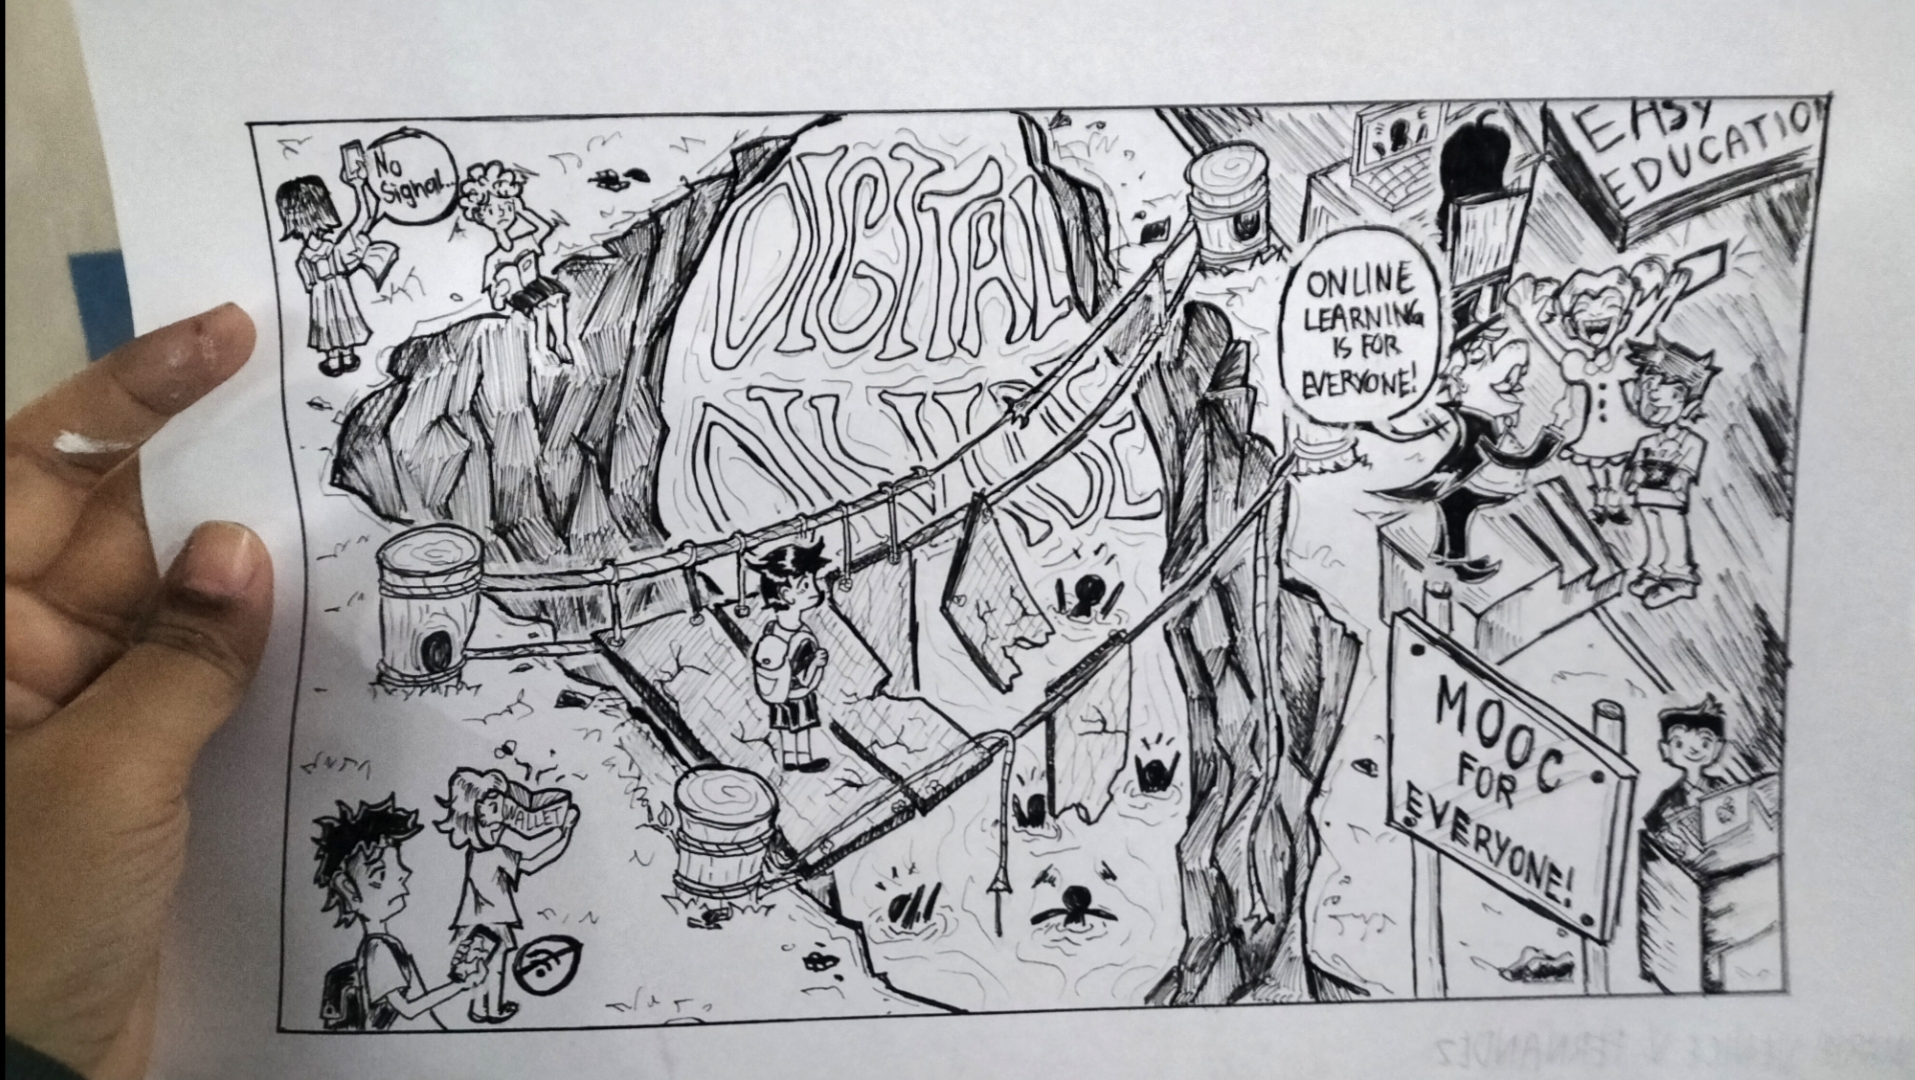 No
Signal...
DIGITAL
DIVIDE
EASY
EDUCATION
ONLINE
LEARNING
IS FOR
EVERYONE!
WALLET
MOOC
FOR
EVERYONE!
V. FERNANDEZ